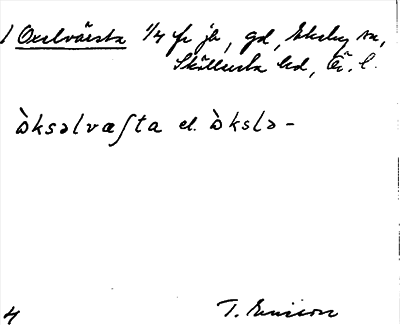 1 Oxelvärsta 1/4 fr jb, gd, Ekeby sn,
Sköllersta hd, Ör. l.
ò̀ksəlvæʃta el. ò̀kslə-
4 T. Ericsson